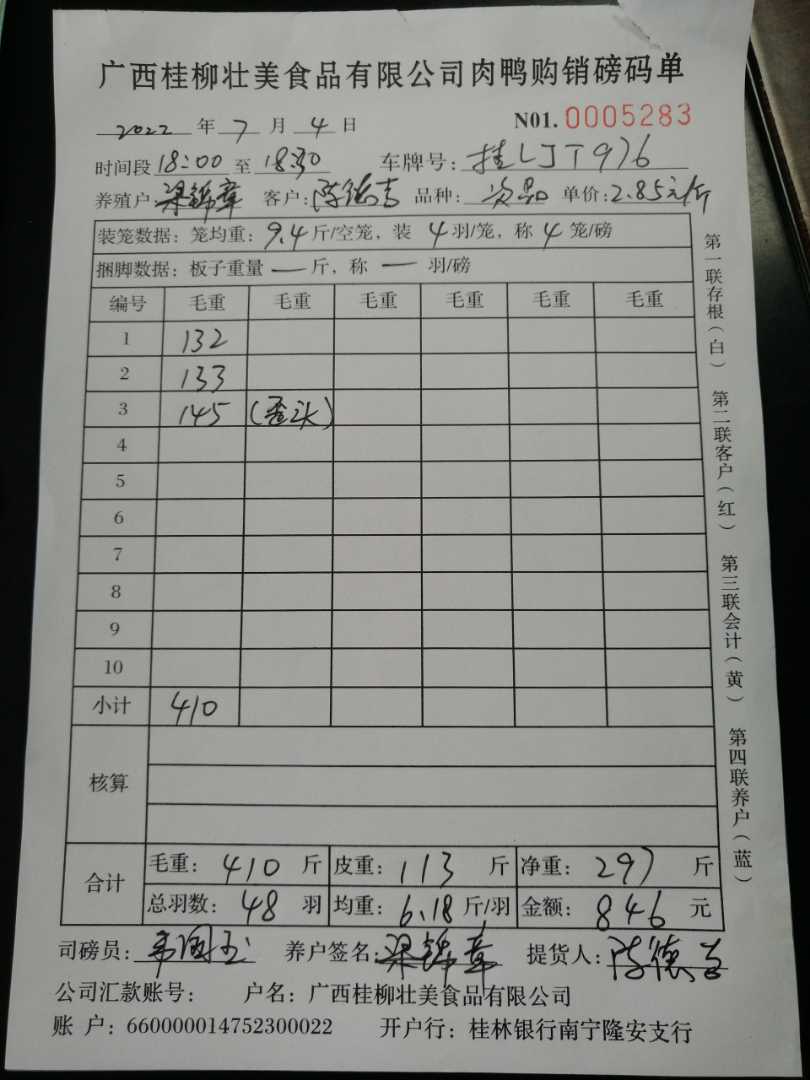 广西桂柳壮美食品有限公司肉鸭购销磅码单
2022 年 7 月 4 日 N01. 0005283
时间段 18:00 至 18:30 车牌号: 桂LJT976
养殖户 梁锦章 客户: 陈德吉 品种: 次品 单价: 2.85元/斤
装笼数据: 笼均重: 9.4 斤/空笼, 装 4 羽/笼, 称 4 笼/磅
捆脚数据: 板子重量 — 斤, 称 — 羽/磅
编号 毛重 毛重 毛重 毛重 毛重 毛重
1 132
2 133
3 145 (歪头)
4
5
6
7
8
9
10
小计 410
核算
合计 毛重: 410 斤 皮重: 113 斤 净重: 297 斤
总羽数: 48 羽 均重: 6.18 斤/羽 金额: 846 元
司磅员: 韦国玉 养户签名: 梁锦章 提货人: 陈德吉
公司汇款账号: 户名: 广西桂柳壮美食品有限公司
账 户: 660000014752300022 开户行: 桂林银行南宁隆安支行
第一联存根(白) 第二联客户(红) 第三联会计(黄) 第四联养户(蓝)